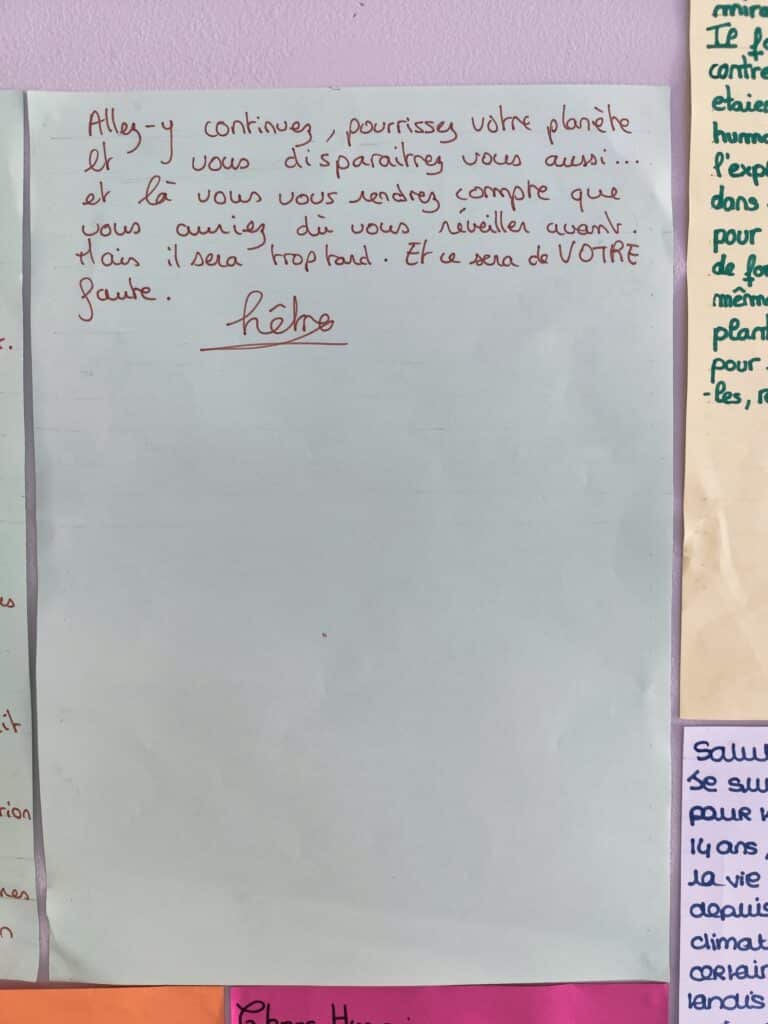 Allez-y continuez, pourrissez votre planète
et vous disparaitrez vous aussi...
et là vous vous rendrez compte que
vous auriez dû vous réveiller avant.
Mais il sera trop tard. Et ce sera de VOTRE
faute.
hêtre
Il fa
contre
etaien
huma
l'expl
dans
pour
de fo
même
plant
pour
-les, r
Salu
Je su
pour v
14 ans,
la vie
depuis
climat
certain
tandis
it
tion
nes
n